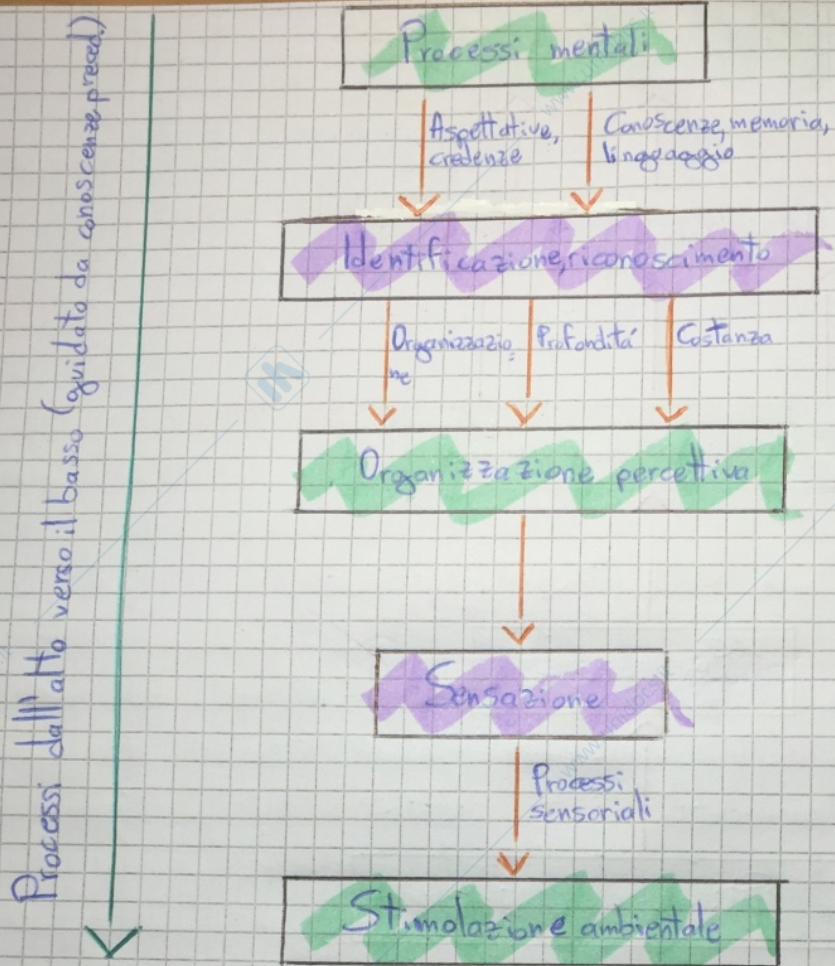 Processi dall'alto verso il basso (guidato da conoscenze preced.)
Processi mentali
Aspettative,
credenze
Conoscenze, memoria,
linguaggio
Identificazione, riconoscimento
Organizzazio
ne
Profonditá
Costanza
Organizzazione percettiva
Sensazione
Processi
sensoriali
Stimolazione ambientale